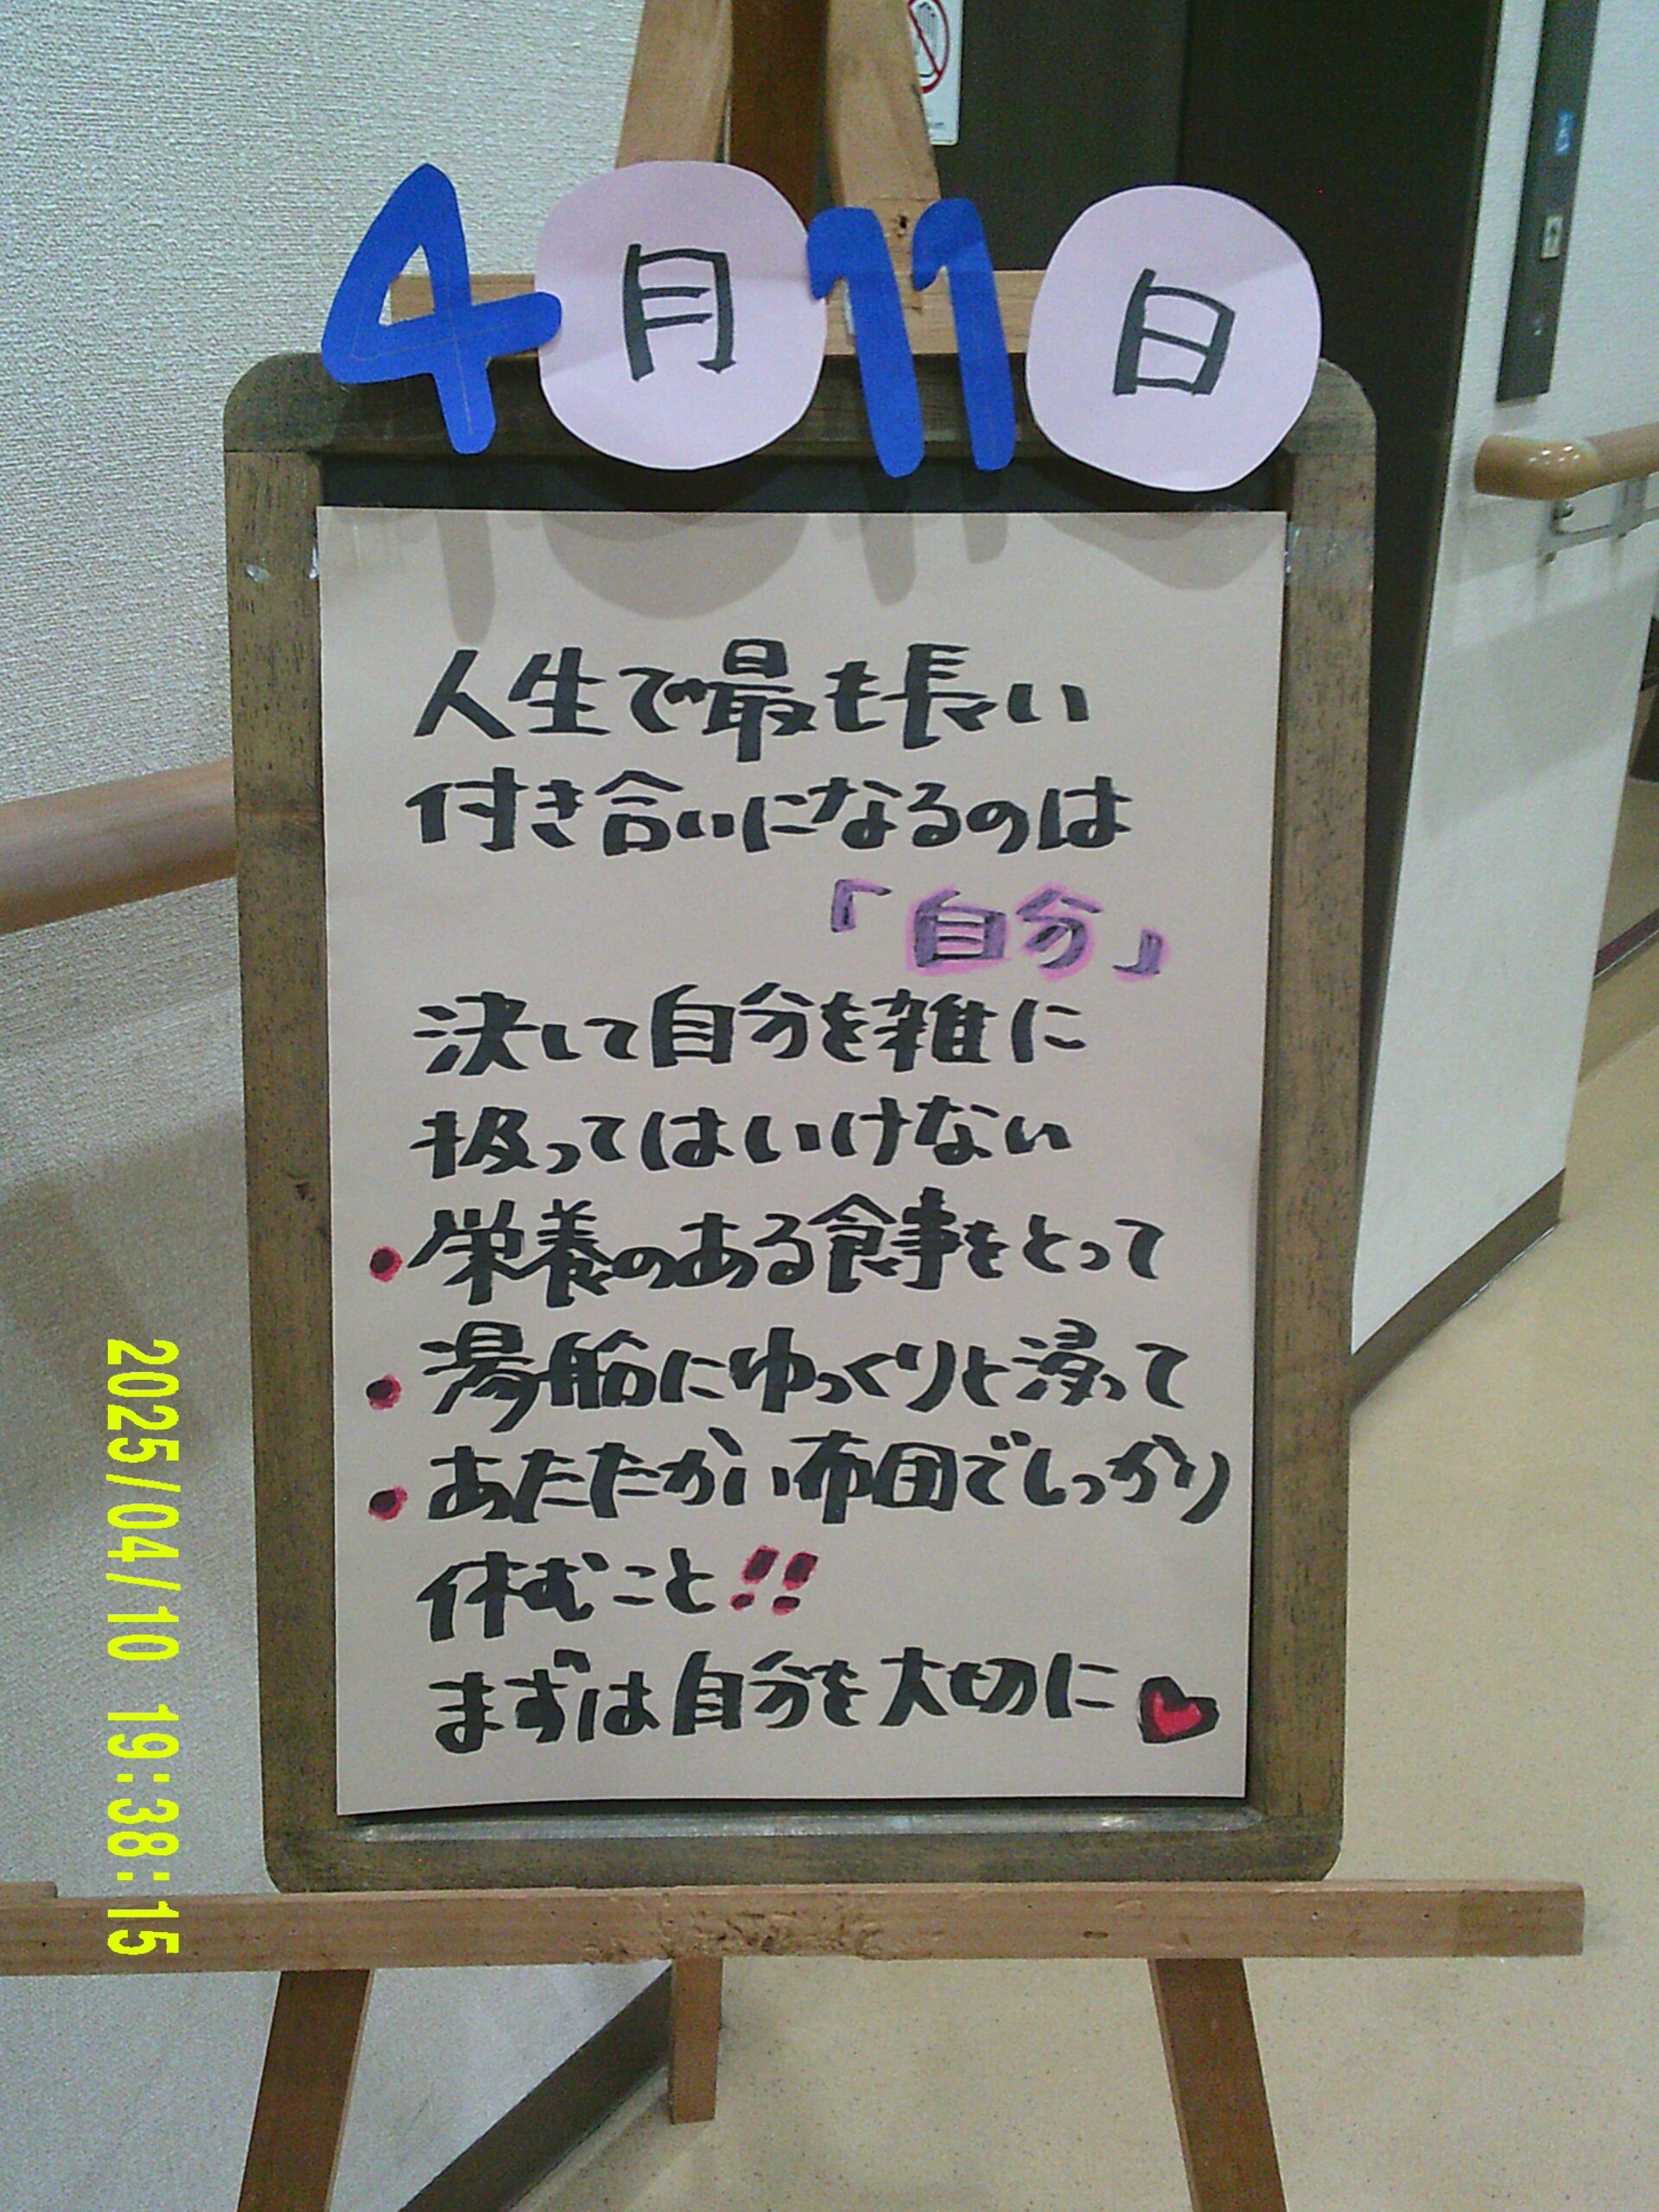 4月11日
人生で最も長い
付き合いになるのは
「自分」
決して自分を雑に
扱ってはいけない
•栄養のある食事をとって
•湯船にゆっくりと浸って
•あたたかい布団でしっかり
休むこと!!
まずは自分を大切に
2025/04/10 19:38:15